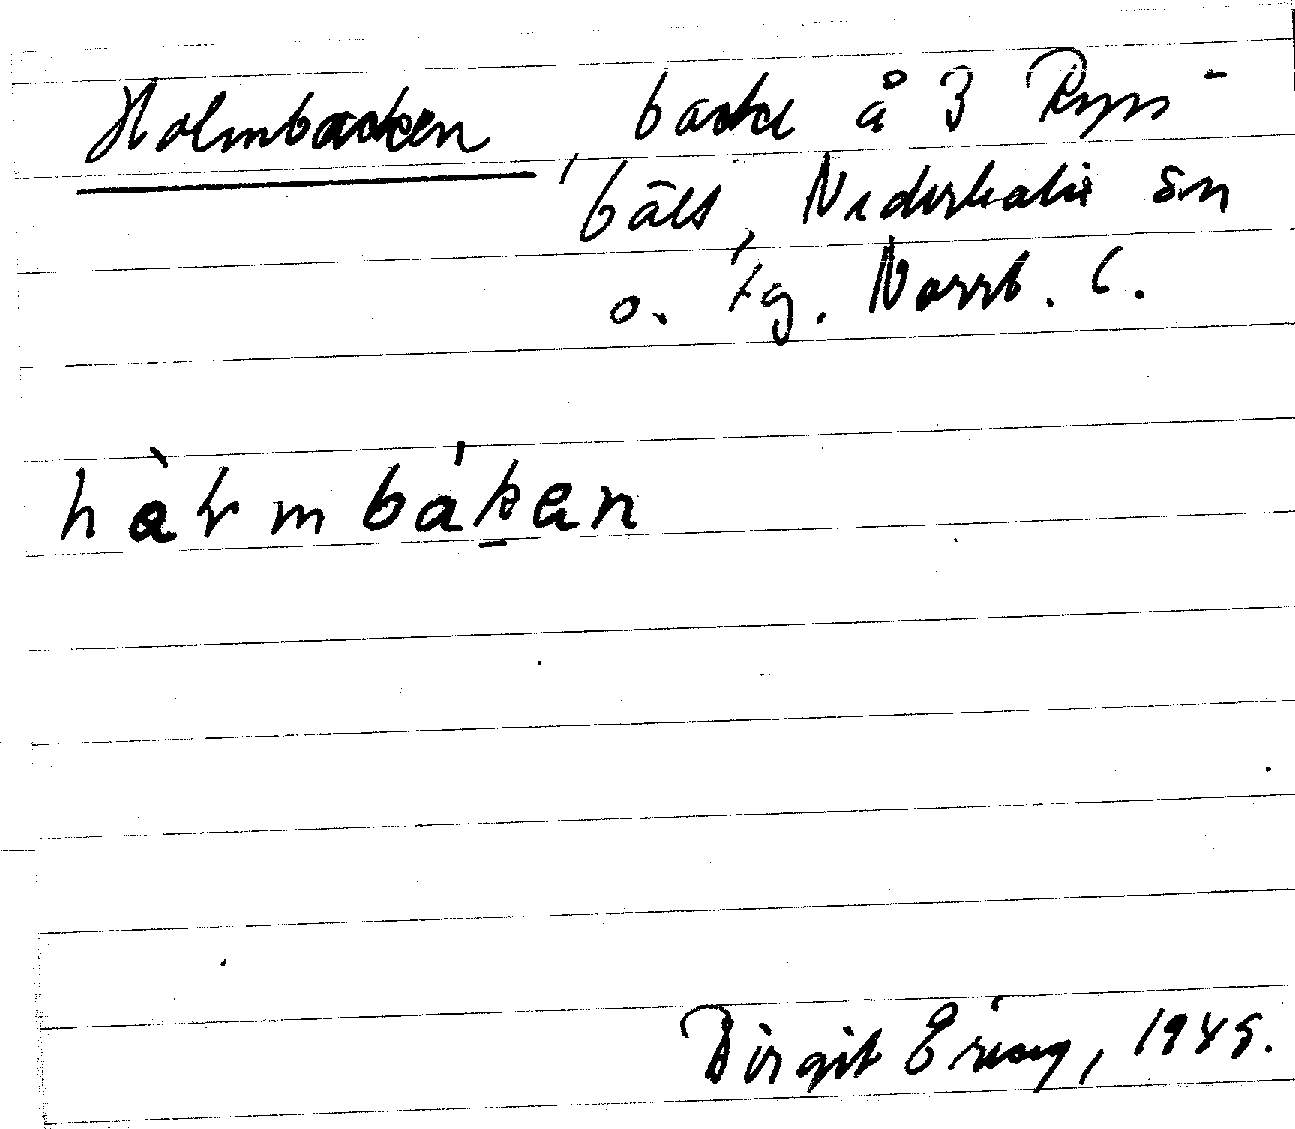 Holmbacken, backe å 3 Ryss-
bält, Nederkalix sn
o. tg. Norrb. l.
hàɫmbákan
Birgit Ering, 1945.